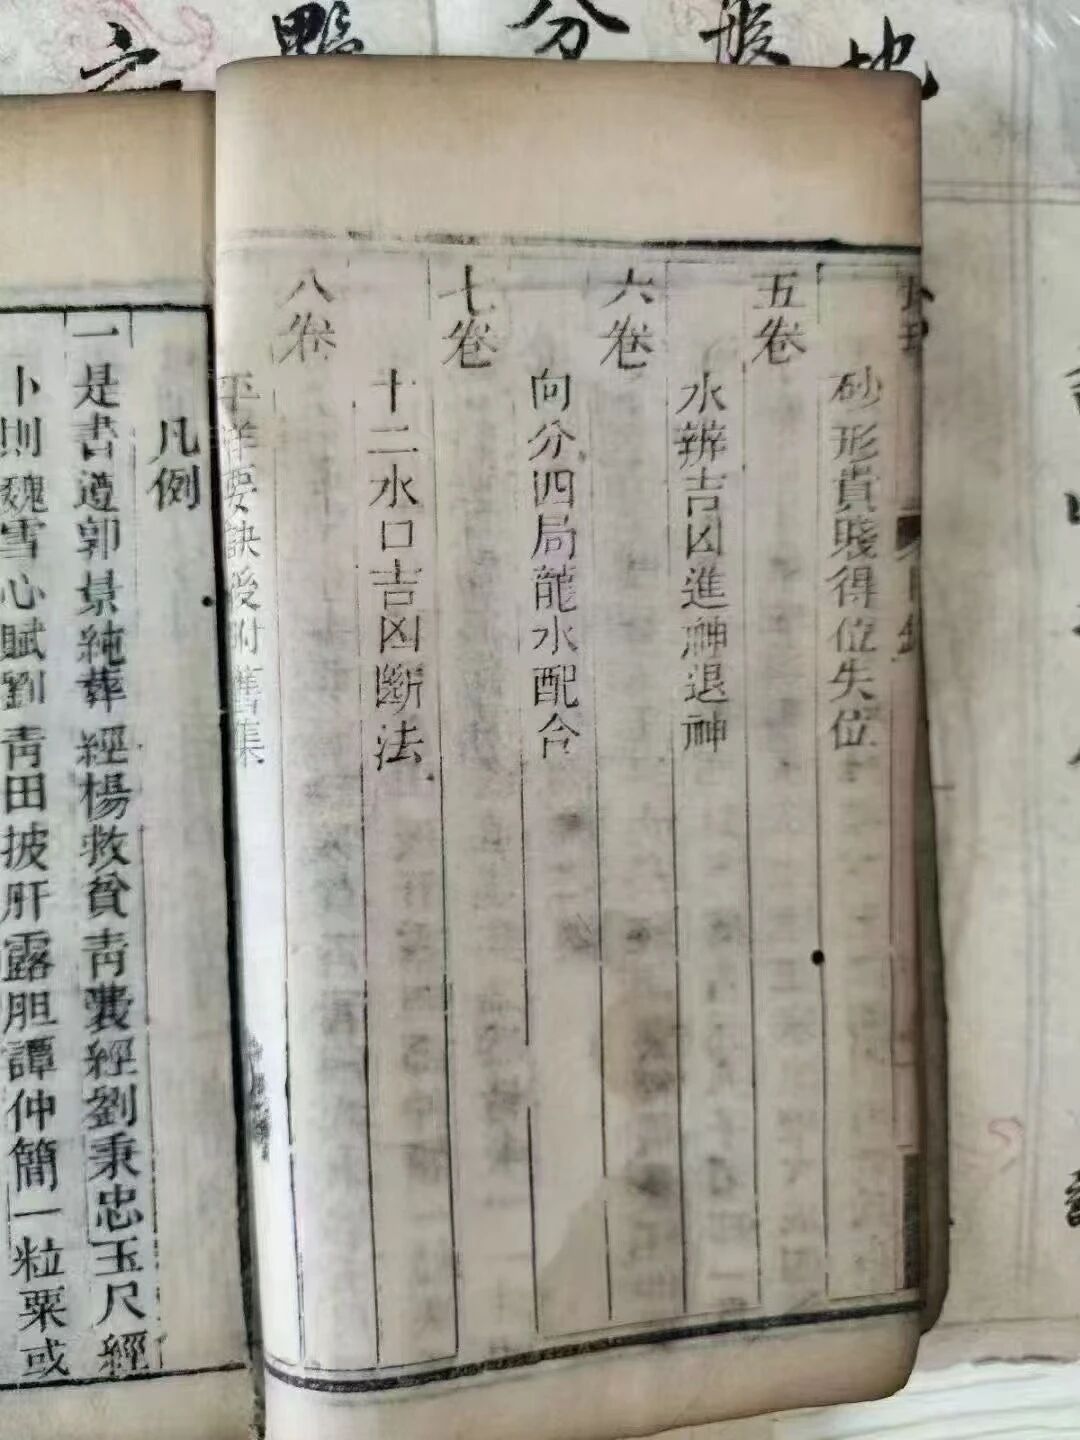 地
般
分
野
立
砂形貴賤得位失位
五卷
水辨吉凶進神退神
六卷
向分四局龍水配合
七卷
十二水口吉凶斷法
八卷
平洋要訣後附舊集
凡例
一是書遵郭景純葬經楊救貧青囊經劉秉忠玉尺經
卜則魏雪心賦劉青田披肝露胆譚仲簡一粒粟或